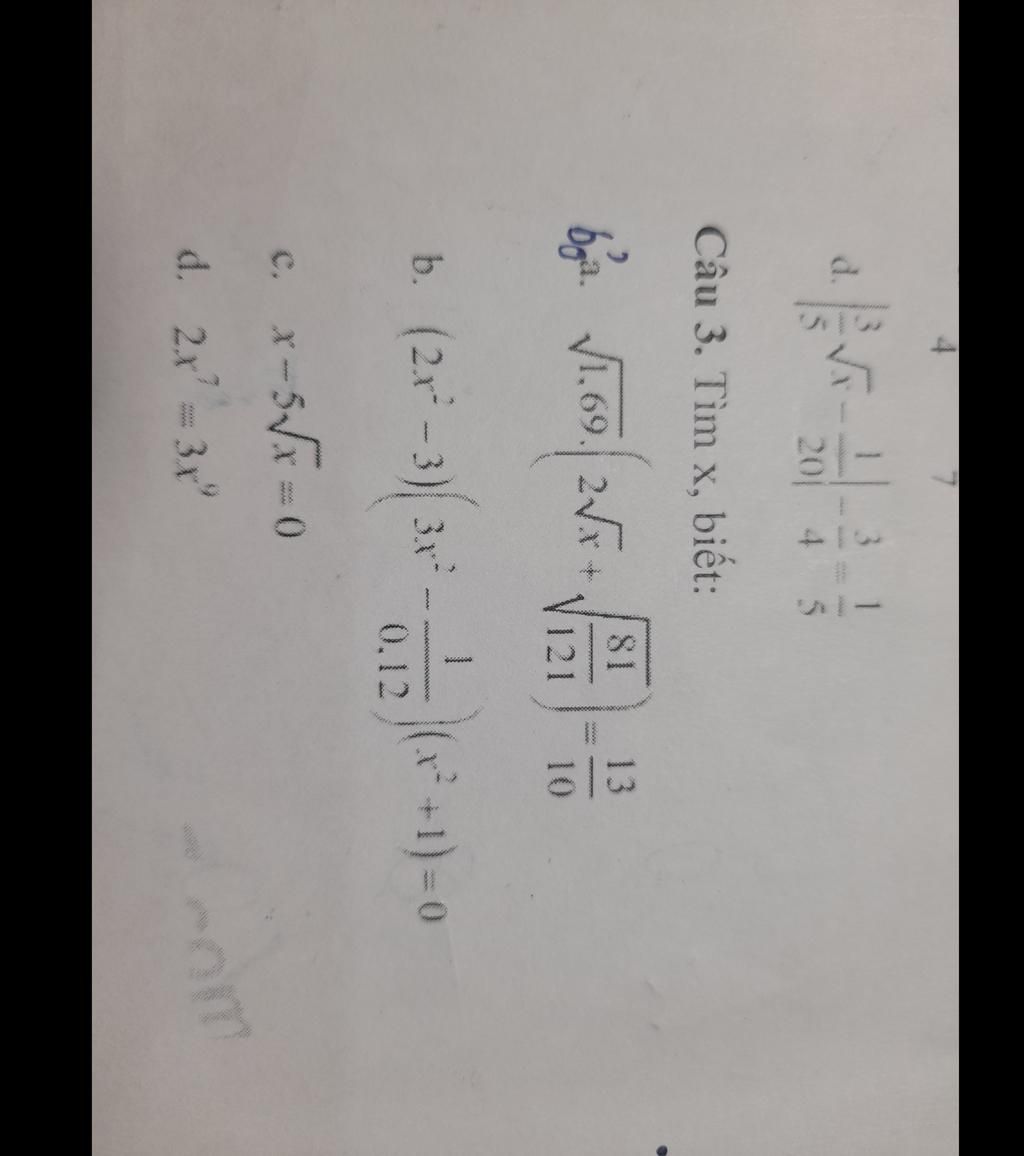 4 7
d. |3/5 √x − 1/20| − 3/4 = 1/5
Câu 3. Tìm x, biết:
a. √1,69.(2√x + √(81/121)) = 13/10
b. (2x² − 3)(3x² − 1/0,12)(x² + 1) = 0
c. x − 5√x = 0
d. 2x⁷ = 3x⁹